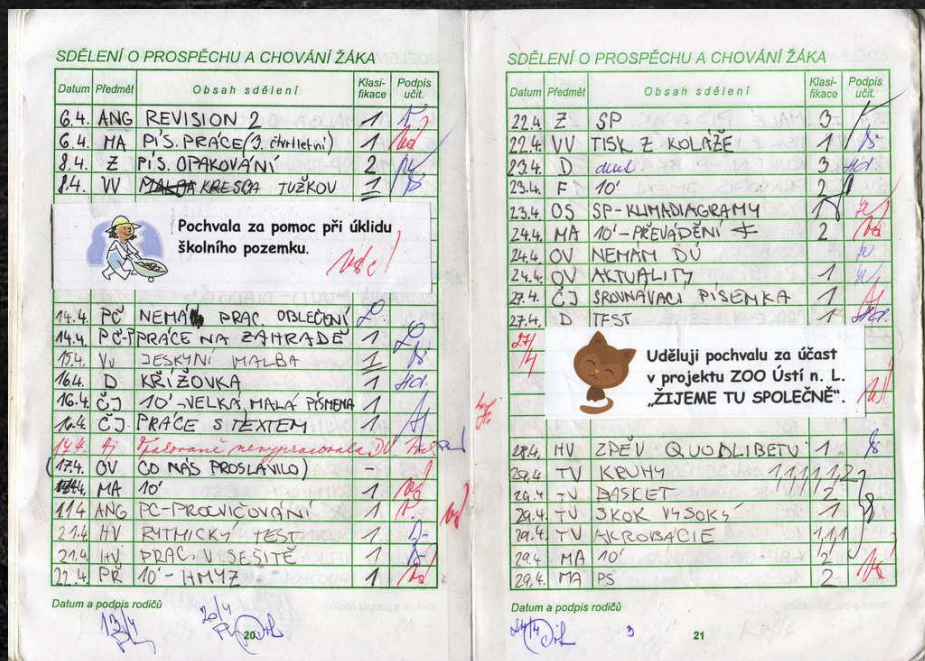 SDĚLENÍ O PROSPĚCHU A CHOVÁNÍ ŽÁKA
Datum Předmět Obsah sdělení Klasi-fikace Podpis učit.
6.4. ANG REVISION 2 1
6.4. MA PÍS. PRÁCE (3. čtvrtletní) 1
8.4. Z PÍS. OPAKOVÁNÍ 2
8.4. VV KRESBA TUŽKOU 1
Pochvala za pomoc při úklidu
školního pozemku.
14.4. PČ NEMÁ PRAC. OBLEČENÍ
14.4. PČ-P PRÁCE NA ZAHRADĚ 1
15.4. VV JESKYNÍ MALBA 1
16.4. D KŘÍŽOVKA 1
16.4. ČJ 10' -VELKÁ, MALÁ PÍSMENA 1
16.4. ČJ PRÁCE S TEXTEM 1
17.4. Aj nevypracovala DÚ
(17.4. OV CO NÁS PROSLAVILO) -
MA 10' 1
ANG PC-PROCVIČOVÁNÍ 1
21.4. HV RYTMICKÝ TEST 1
21.4. HV PRÁCE V SEŠITĚ 1
22.4. PŘ 10' - HMYZ 1
Datum a podpis rodičů
13/4 20/4
20
SDĚLENÍ O PROSPĚCHU A CHOVÁNÍ ŽÁKA
Datum Předmět Obsah sdělení Klasi-fikace Podpis učit.
22.4. Z SP 3
22.4. VV TISK Z KOLÁŽE 1
23.4. D 3
23.4. F 10' 2
23.4. OS SP-KLIMADIAGRAMY 1
24.4. MA 10' -PŘEVÁDĚNÍ 2
24.4. OV NEMÁM DÚ
24.4. OV AKTUALITY 1
27.4. ČJ SROVNÁVACÍ PÍSEMKA 1
27.4. D TEST 1
27/4
Uděluji pochvalu za účast
v projektu ZOO Ústí n. L.
„ŽIJEME TU SPOLEČNĚ“.
28.4. HV ZPĚV QUODLIBETU 1
29.4. TV KRUHY 1,1,1,1,1,2
29.4. TV BASKET 2
29.4. TV SKOK VYSOKÝ 1
29.4. TV AKROBACIE 1,1,1
29.4. MA 10' 2
29.4. MA PS 2
Datum a podpis rodičů
24/4
21